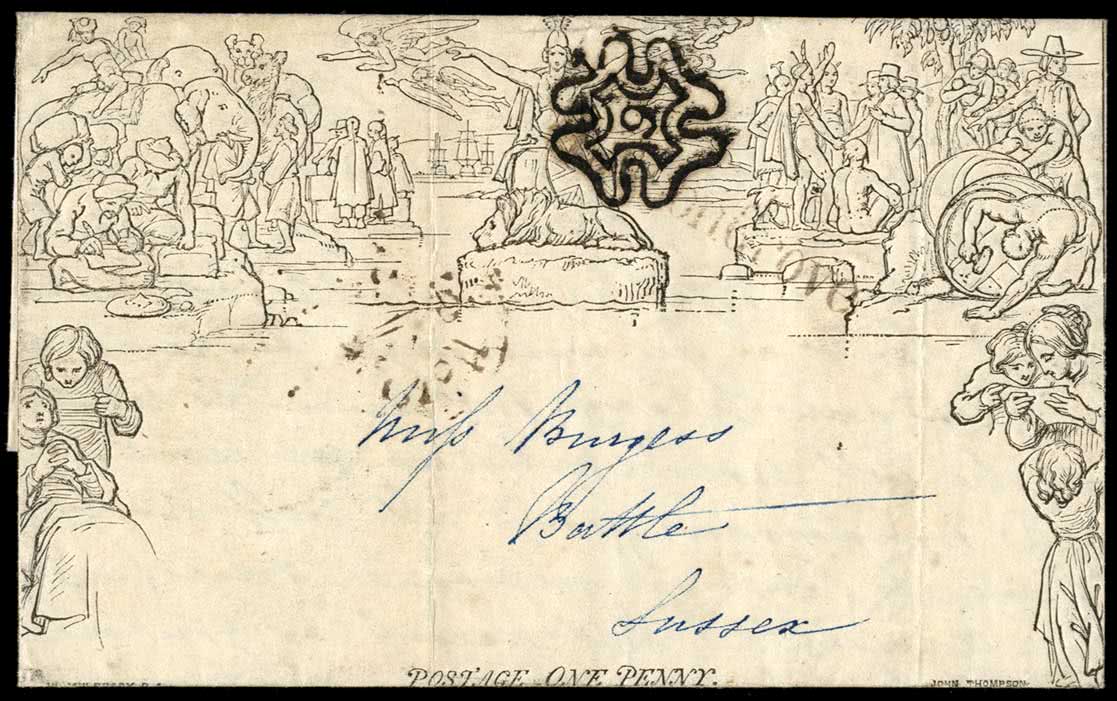 Miss Burgess
Battle
Sussex
POSTAGE ONE PENNY.
JOHN THOMPSON